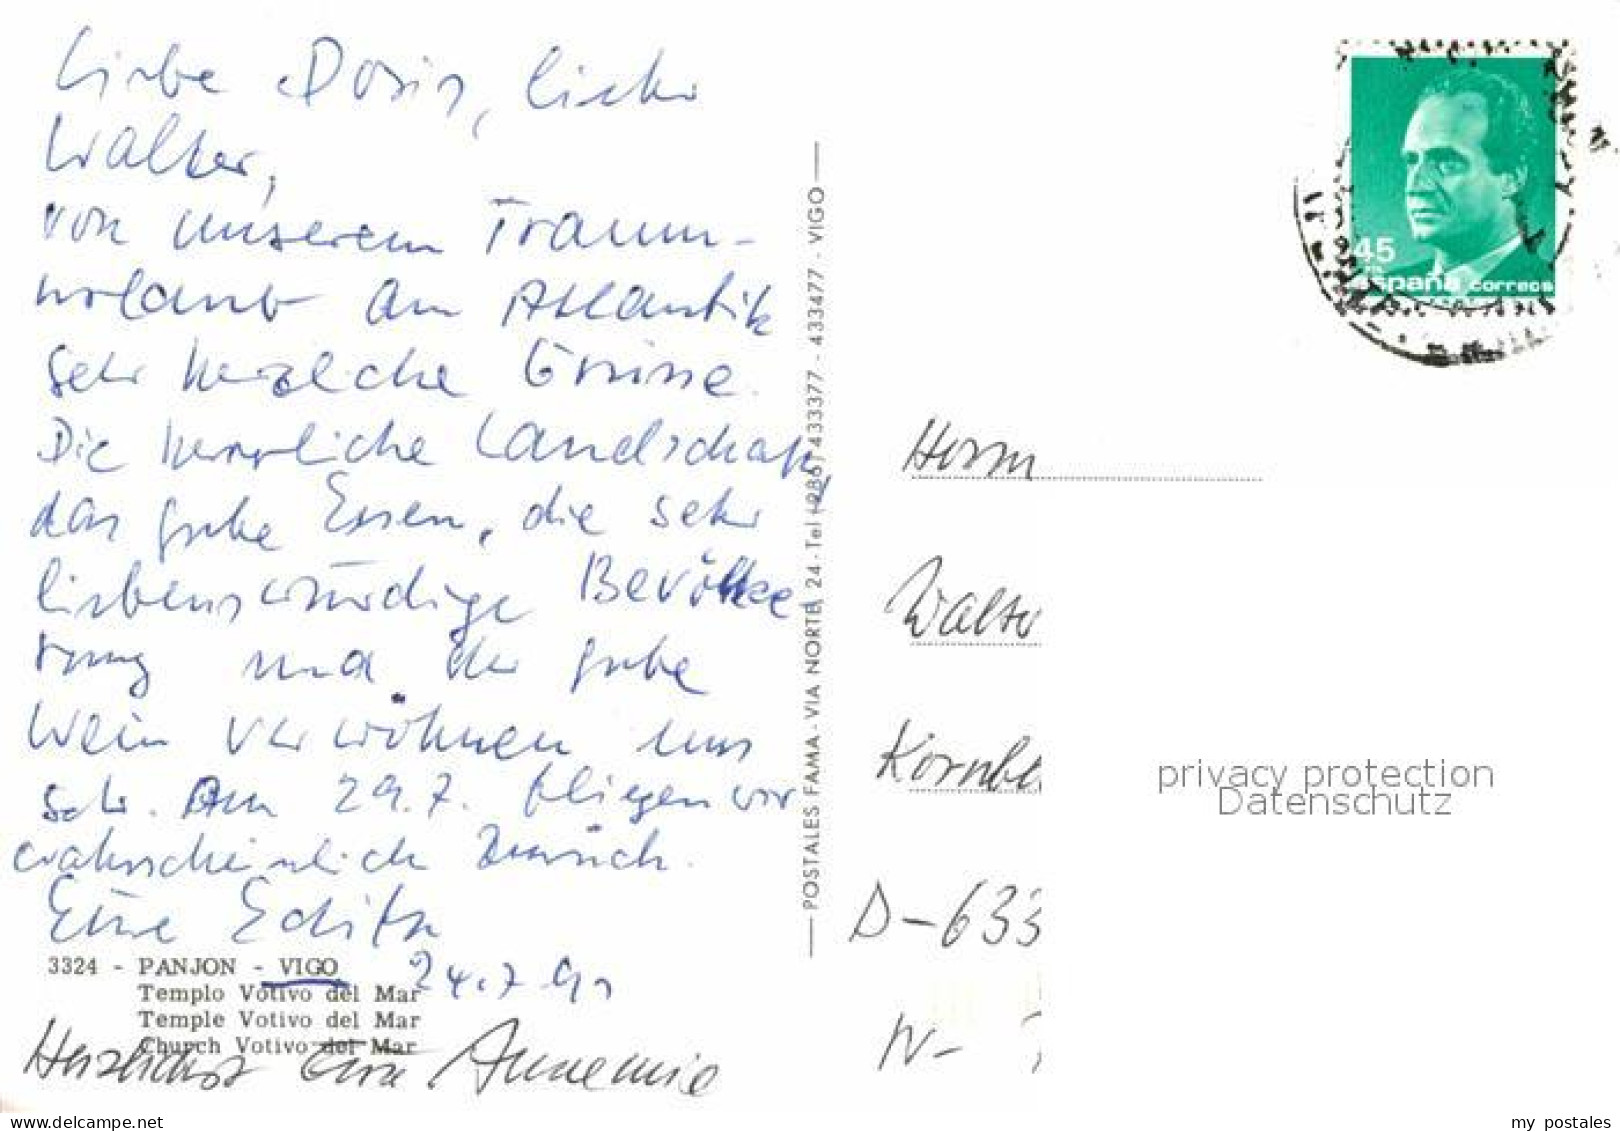 Liebe Doris, lieber
Walter,
von unserem Traum-
urlaub am Atlantik
sehr herzliche Grüsse.
Die herrliche Landschaft,
das gute Essen, die sehr
liebenswürdige Bevölke
rung und der gute
Wein verwöhnen uns
sehr. Am 29.7. fliegen wir
wahrscheinlich zurück.
Eure Edith
24.7.91
3324 - PANJON - VIGO
Templo Votivo del Mar
Temple Votivo del Mar
Church Votivo del Mar
Herzlichst Eure Annemie
POSTALES FAMA - VIA NORTE, 24 - Tel (986) 433377 - 433477 - VIGO
45
España correos
Herrn
Walter
Kornbe
D-633
W-
privacy protection
Datenschutz
my postales
www.delcampe.net